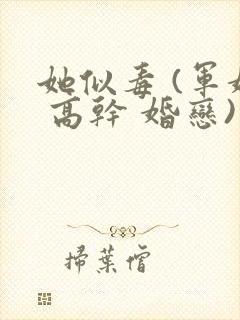 她似毒 (軍婚
高幹 婚戀)
掃葉僧